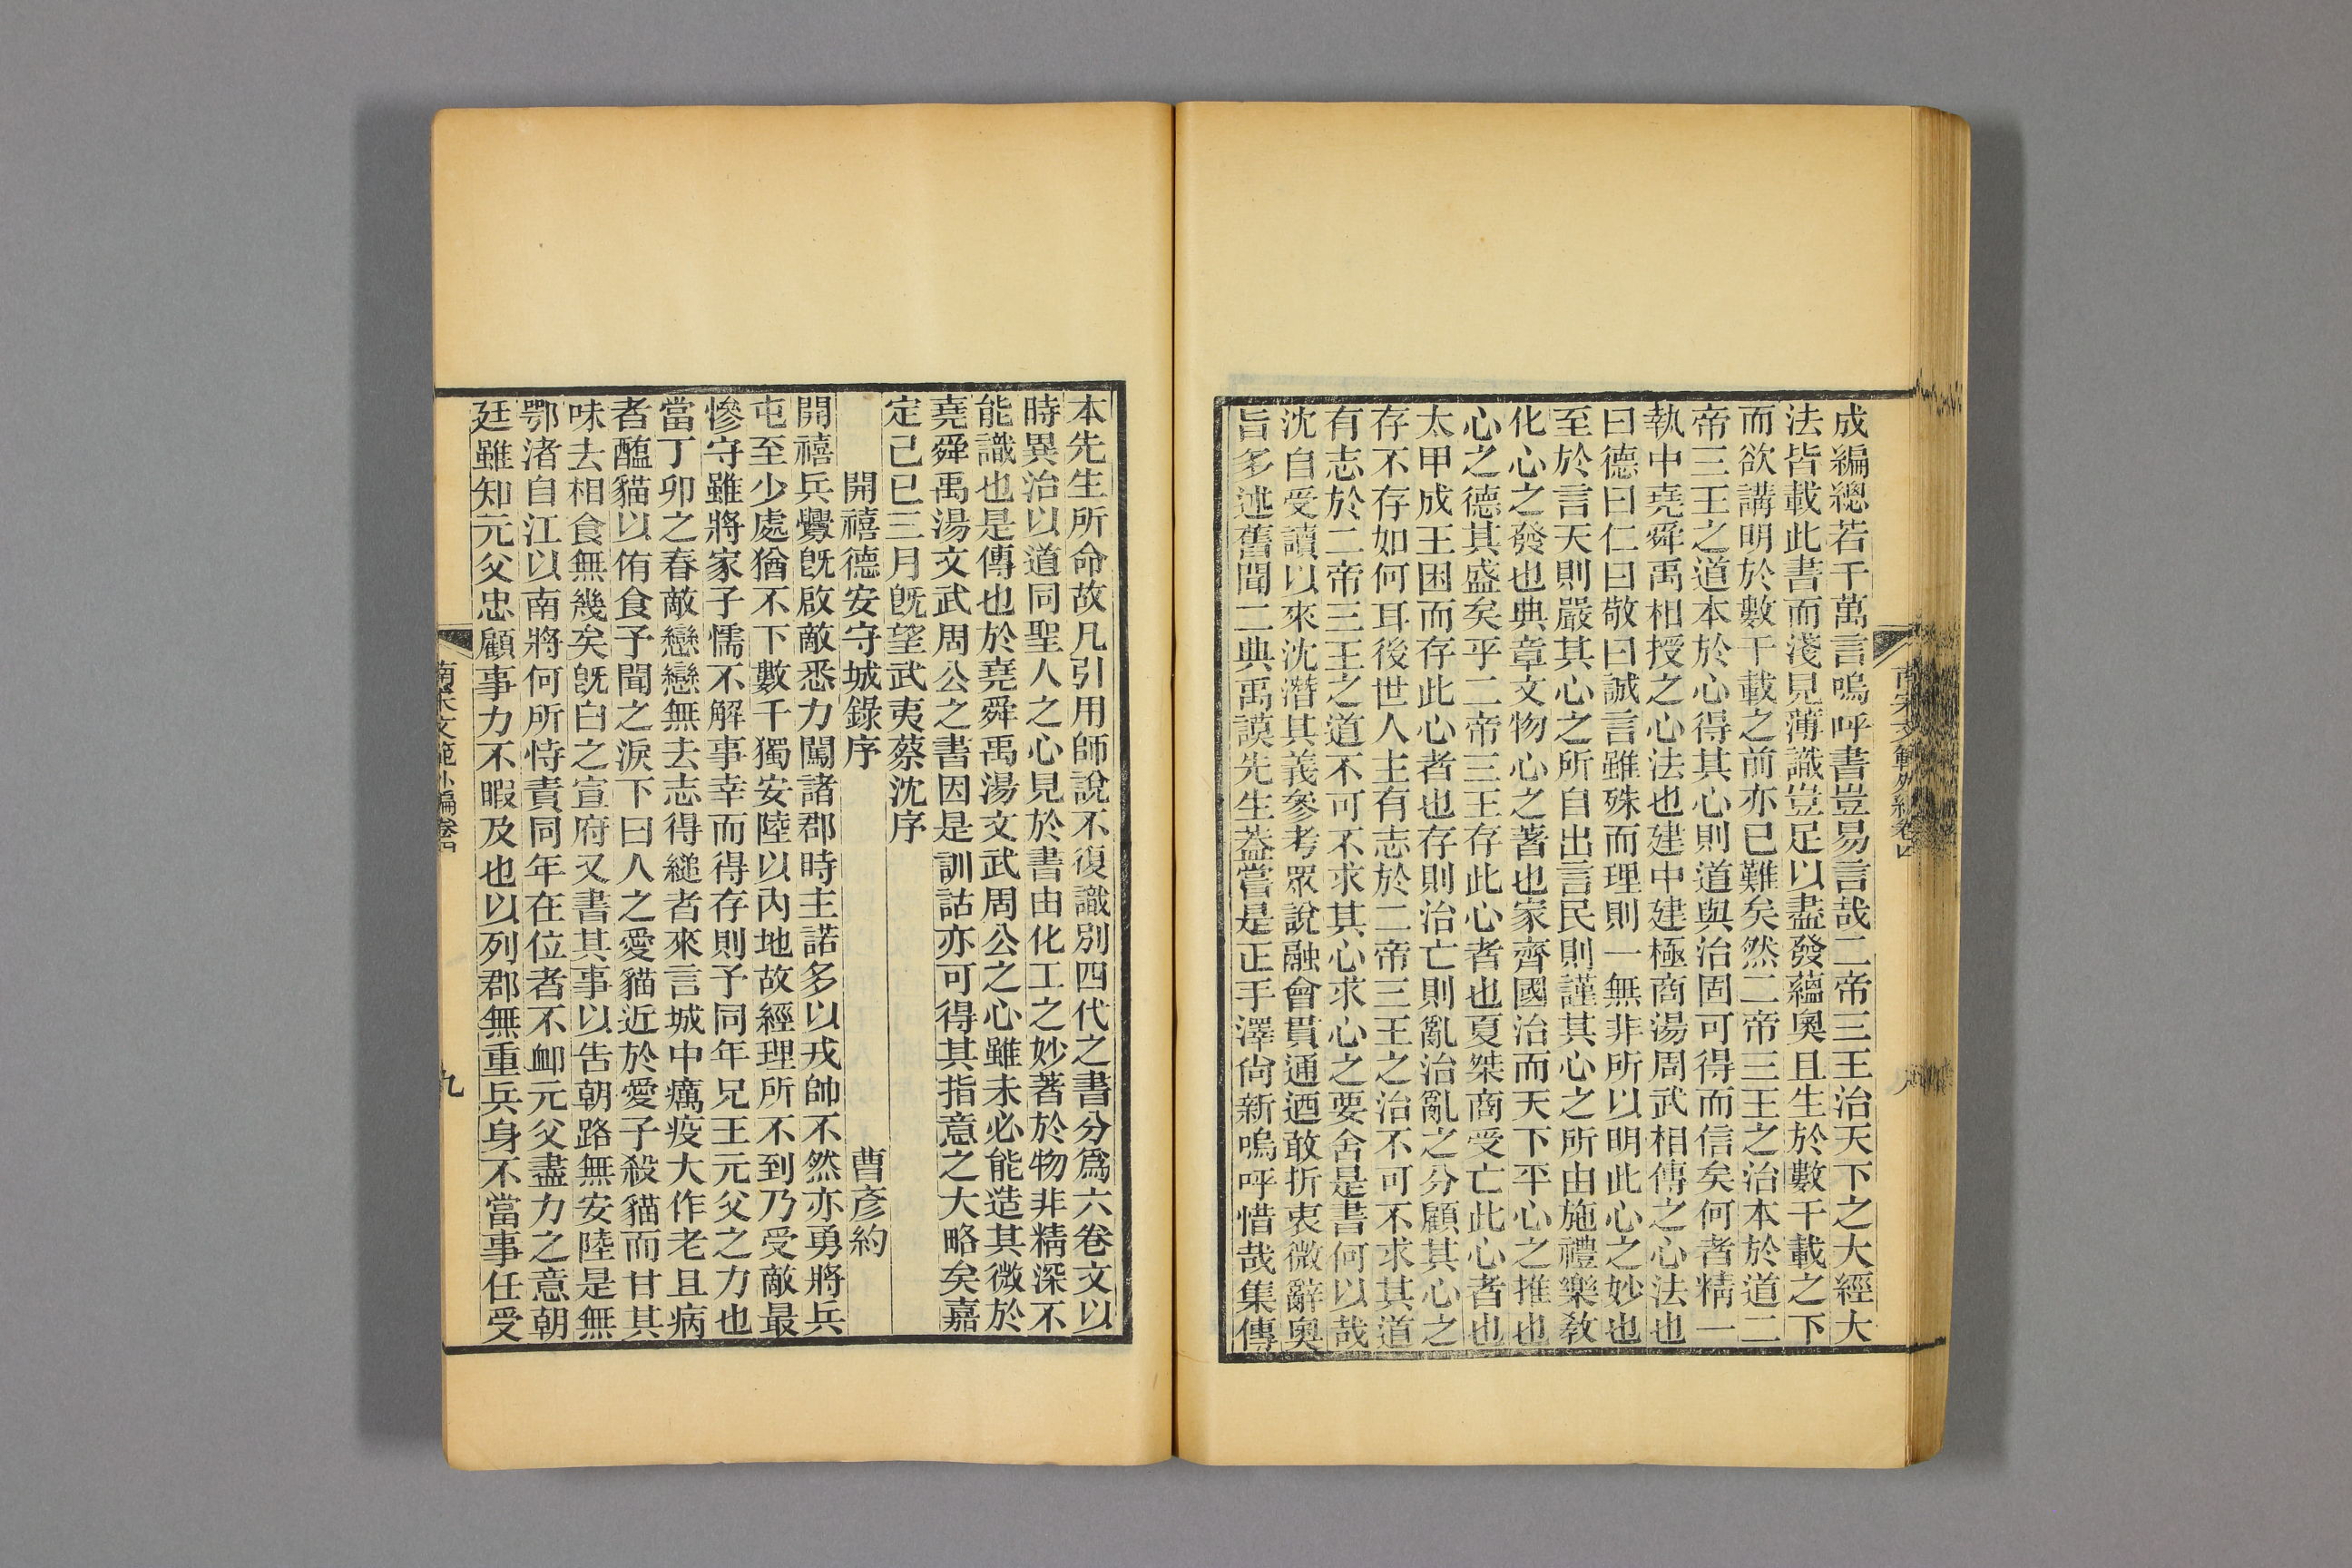 成編總若干萬言嗚呼書豈易言哉二帝三王治天下之大經大
法皆載此書而淺見薄識豈足以盡發蘊奧且生於數千載之下
而欲講明於數千載之前亦已難矣然二帝三王之治本於道二
帝三王之道本於心得其心則道與治固可得而信矣何者精一
執中堯舜禹相授之心法也建中建極商湯周武相傳之心法也
曰德曰仁曰敬曰誠言雖殊而理則一無非所以明此心之妙也
至於言天則嚴其心之所自出言民則謹其心之所由施禮樂敎
化心之發也典章文物心之著也家齊國治而天下平心之推也
心之德其盛矣乎二帝三王存此心者也夏桀商受亡此心者也
太甲成王困而存此心者也存則治亡則亂治亂之分顧其心之
存不存如何耳後世人主有志於二帝三王之治不可不求其道
有志於二帝三王之道不可不求其心求心之要舍是書何以哉
沈自受讀以來沈潛其義參考眾說融會貫通迺敢折衷微辭奧
旨多述舊聞二典禹謨先生葢嘗是正手澤尙新嗚呼惜哉集傳
南宋文範外編卷四
八
本先生所命故凡引用師說不復識別四代之書分爲六卷文以
時異治以道同聖人之心見於書由化工之妙著於物非精深不
能識也是傳也於堯舜禹湯文武周公之心雖未必能造其微於
堯舜禹湯文武周公之書因是訓詁亦可得其指意之大略矣嘉
定己巳三月旣望武夷蔡沈序
開禧德安守城錄序
曹彥約
開禧兵釁旣啟敵悉力闖諸郡時主諾多以戎帥不然亦勇將兵
屯至少處猶不下數千獨安陸以內地故經理所不到乃受敵最
慘守雖將家子懦不解事幸而得存則予同年兄王元父之力也
當丁卯之春敵戀戀無去志得縋者來言城中癘疫大作老且病
者醢貓以侑食予聞之淚下曰人之愛貓近於愛子殺貓而甘其
味去相食無幾矣旣白之宣府又書其事以吿朝路無安陸是無
鄂渚自江以南將何所恃責同年在位者不卹元父盡力之意朝
廷雖知元父忠顧事力不暇及也以列郡無重兵身不當事任受
南宋文範外編卷四
九